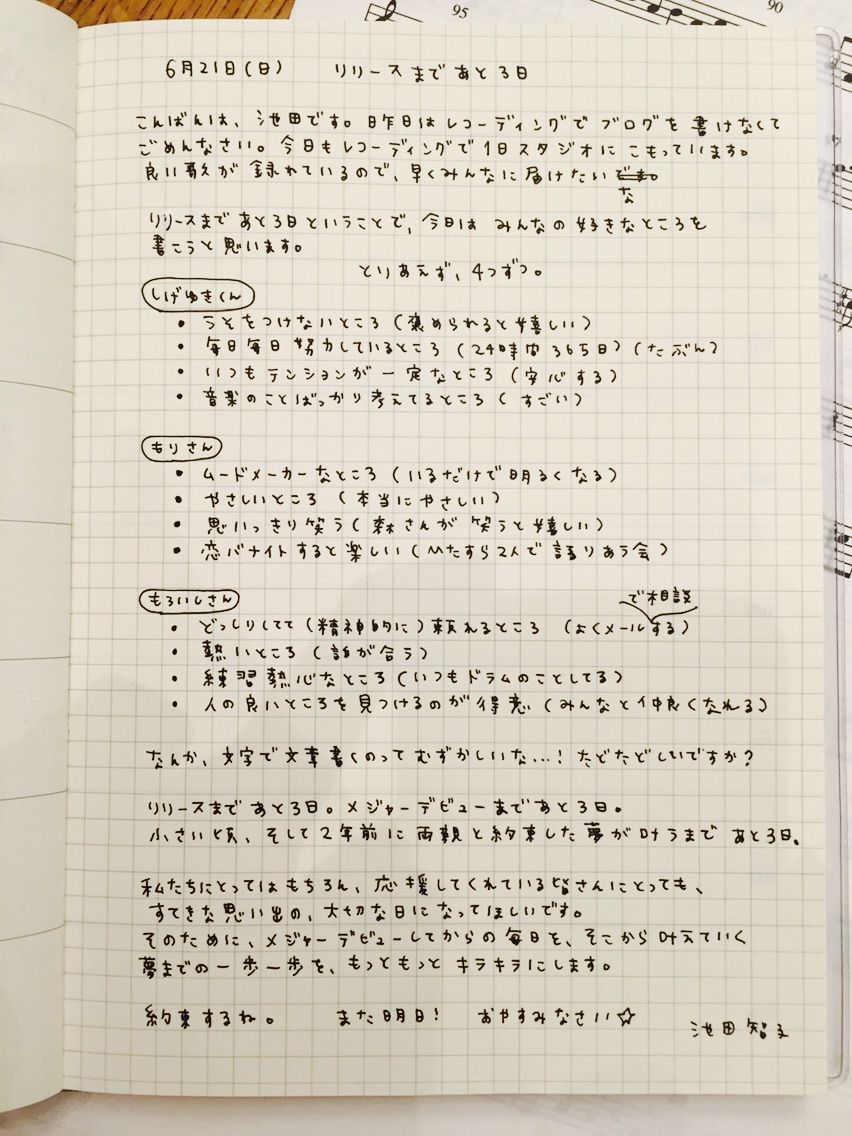 95
90
6月21日(日) リリースまであと3日
こんばんは、池田です。昨日はレコーディングでブログを書けなくて
ごめんなさい。今日もレコーディングで1日スタジオにこもっています。
良い歌が録れているので、早くみんなに届けたいな
リリースまであと3日ということで、今日はみんなの好きなところを
書こうと思います。
とりあえず、4つずつ。
しげゆきくん
• うそをつけないところ(褒められると嬉しい)
• 毎日毎日努力しているところ(24時間365日)(たぶん)
• いつもテンションが一定なところ(安心する)
• 音楽のことばっかり考えてるところ(すごい)
もりさん
• ムードメーカーなところ(いるだけで明るくなる)
• やさしいところ(本当にやさしい)
• 思いっきり笑う(森さんが笑うと嬉しい)
• 恋バナイトすると楽しい(ひたすら2人で語りあう会)
もろいしさん
• どっしりしてて(精神的に)頼れるところ(よくメールで相談する)
• 熱いところ(話が合う)
• 練習熱心なところ(いつもドラムのことしてる)
• 人の良いところを見つけるのが得意(みんなと仲良くなれる)
なんか、文字で文章書くのってむずかしいな...!たどたどしいですか?
リリースまであと3日。メジャーデビューまであと3日。
小さい頃、そして2年前に両親と約束した夢が叶うまであと3日。
私たちにとってはもちろん、応援してくれている皆さんにとっても、
すてきな思い出の、大切な日になってほしいです。
そのために、メジャーデビューしてからの毎日を、そこから叶えていく
夢までの一歩一歩を、もっともっとキラキラにします。
約束するね。 また明日! おやすみなさい☆
池田智子